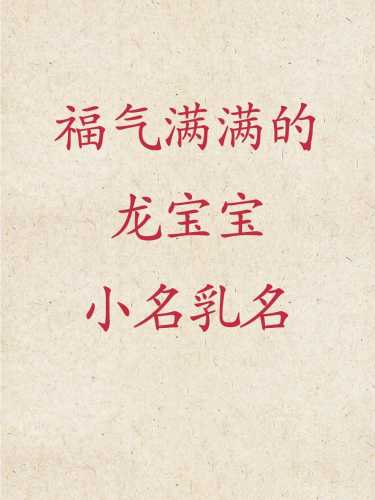 福气满满的
龙宝宝
小名乳名